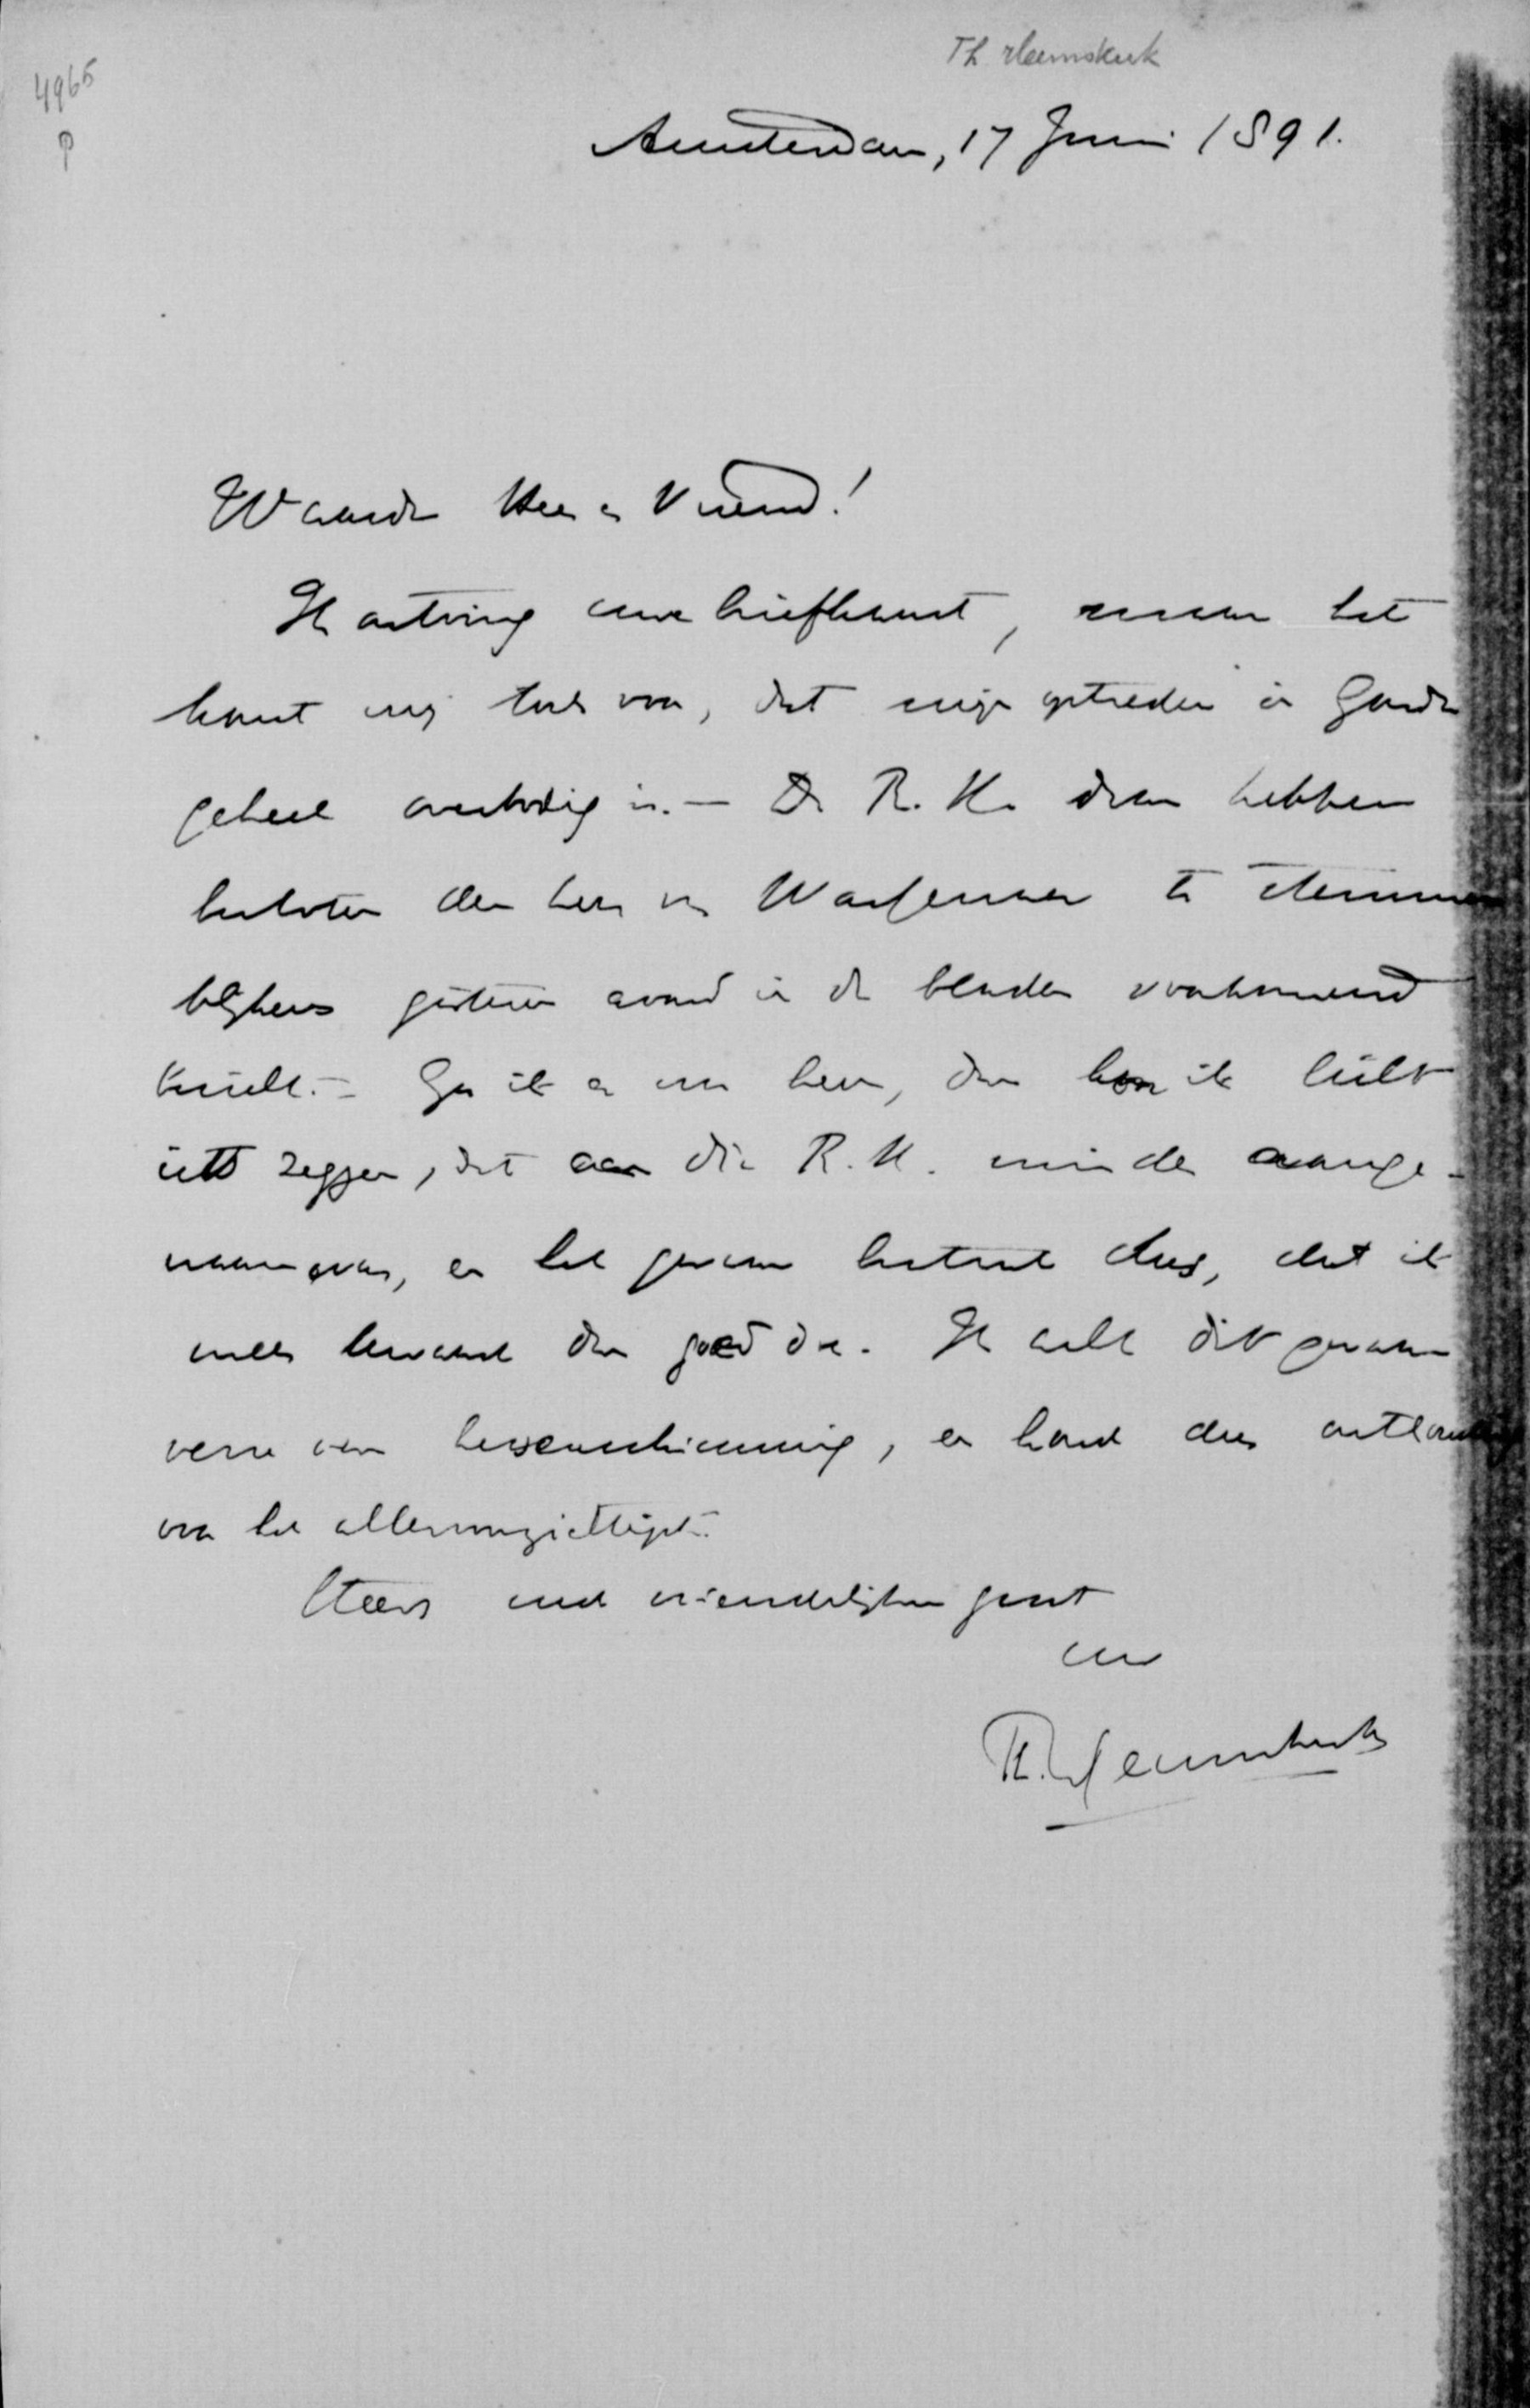 Th Heemskerk
4965
P
Amsterdam, 17 Juni 1891.
Waarde Heer en Vriend!
Ik ontving uwe briefkaart, maar het
komt mij toch voor, dat mijn optreden in Gouda
geheel overbodig is. — De R. K. daar hebben
besloten den heer van Wassenaer te stemmen
blijkens gisteren avond in de bladen voorkomend
bericht. — Ga ik er nu heen, dan kon ik licht
iets zeggen, dat aan die R. K. minder aange-
naam was, en het gevaar bestaat dus, dat ik
meer kwaad dan goed doe. Ik acht dit gevaar
verre van hersenschimmig, en houd dus onthouding
voor het allernuttigst.
Steeds met vriendelijken groet
uw
Th. Heemskerk